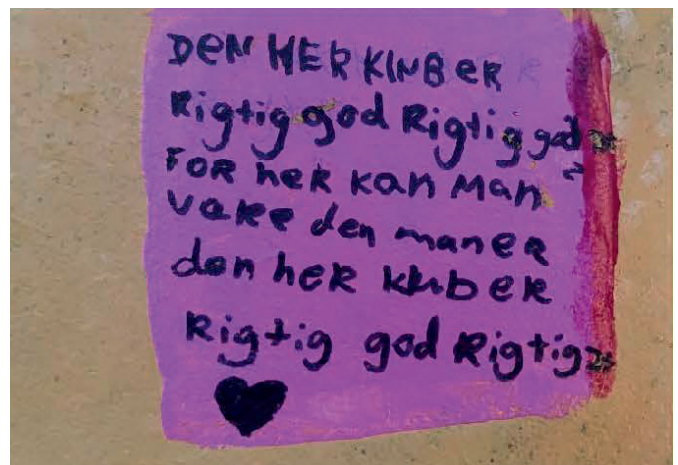 DEN HER KLUB ER
Rigtig god Rigtig god
FOR her kan Man
VÆRE den man er
den her klub er
Rigtig god Rigtig